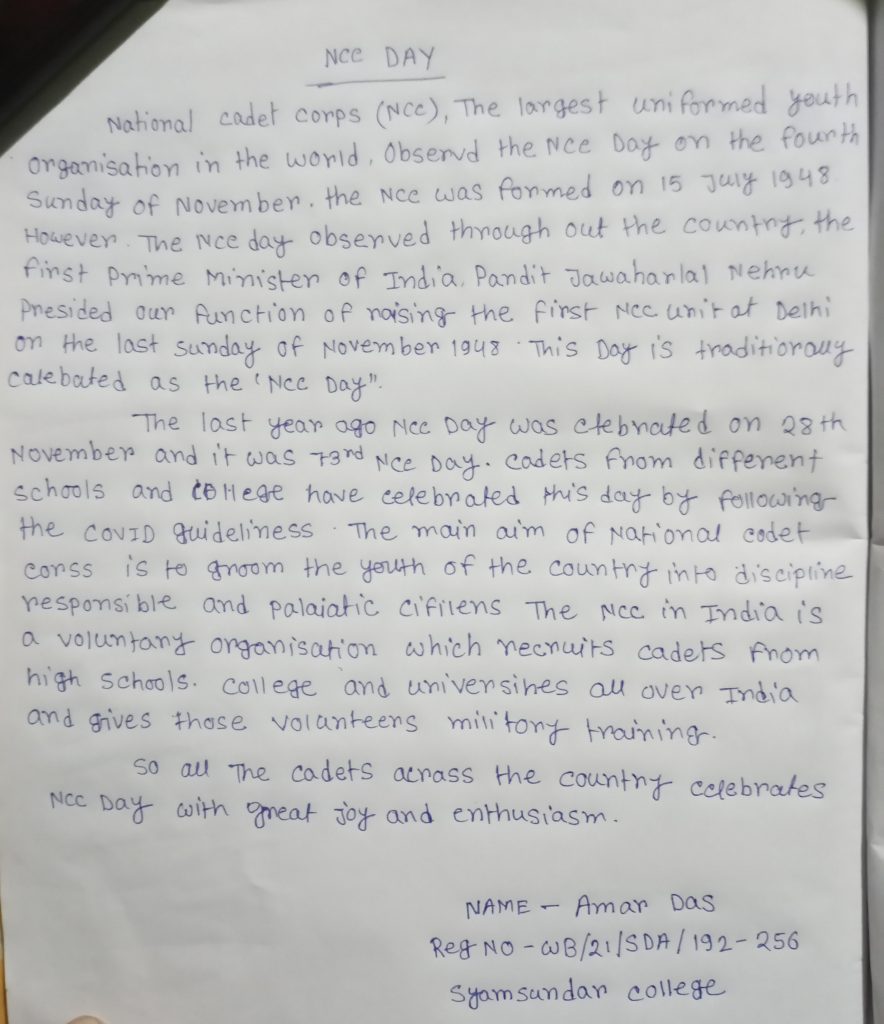 NCC DAY
National cadet corps (NCC), The largest uniformed youth
organisation in the world, Observd the NCC Day on the fourth
Sunday of November. the NCC was formed on 15 July 1948
However. The NCC day observed through out the country, the
first prime Minister of India, Pandit Jawaharlal Nehru
Presided our function of raising the first NCC unit at Delhi
on the last sunday of November 1948. This Day is traditioraly
calebated as the 'NCC Day".
The last year ago NCC Day was clebrated on 28th
November and it was 73rd NCC Day. cadets from different
schools and college have celebrated this day by following
the COVID guideliness. The main aim of National codet
corss is to groom the youth of the country into discipline
responsible and palaiatic cifilens The NCC in India is
a voluntary organisation which recruits cadets from
high schools. college and universihes all over India
and gives those volanteers military training.
So all The cadets acrass the country celebrates
NCC Day with great joy and enthusiasm.
NAME - Amar Das
Reg NO - WB/21/SDA/192-256
Syamsundar college